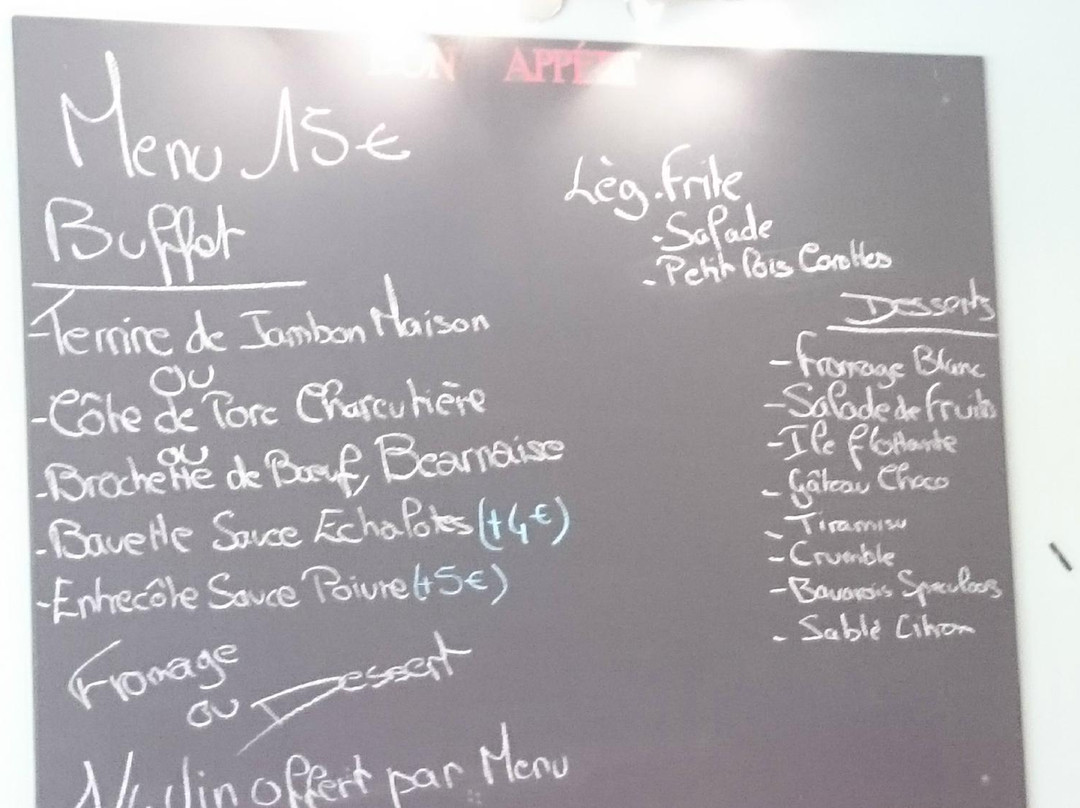 BON APPÉTIT
Menu 15€
Buffet
-Terrine de Jambon Maison
ou
-Côte de Porc Charcutière
ou
-Brochette de Bœuf, Bearnaise
-Bavette Sauce Echalotes (+4€)
-Entrecôte Sauce Poivre (+5€)
Fromage
ou Dessert
offert par Menu
Lèg. Frite
-Salade
-Petit Pois Carottes
Desserts
-Fromage Blanc
-Salade de Fruits
-Ile flottante
-Gâteau Choco
-Tiramisu
-Crumble
-Bavarois Speculoos
-Sablé Citron